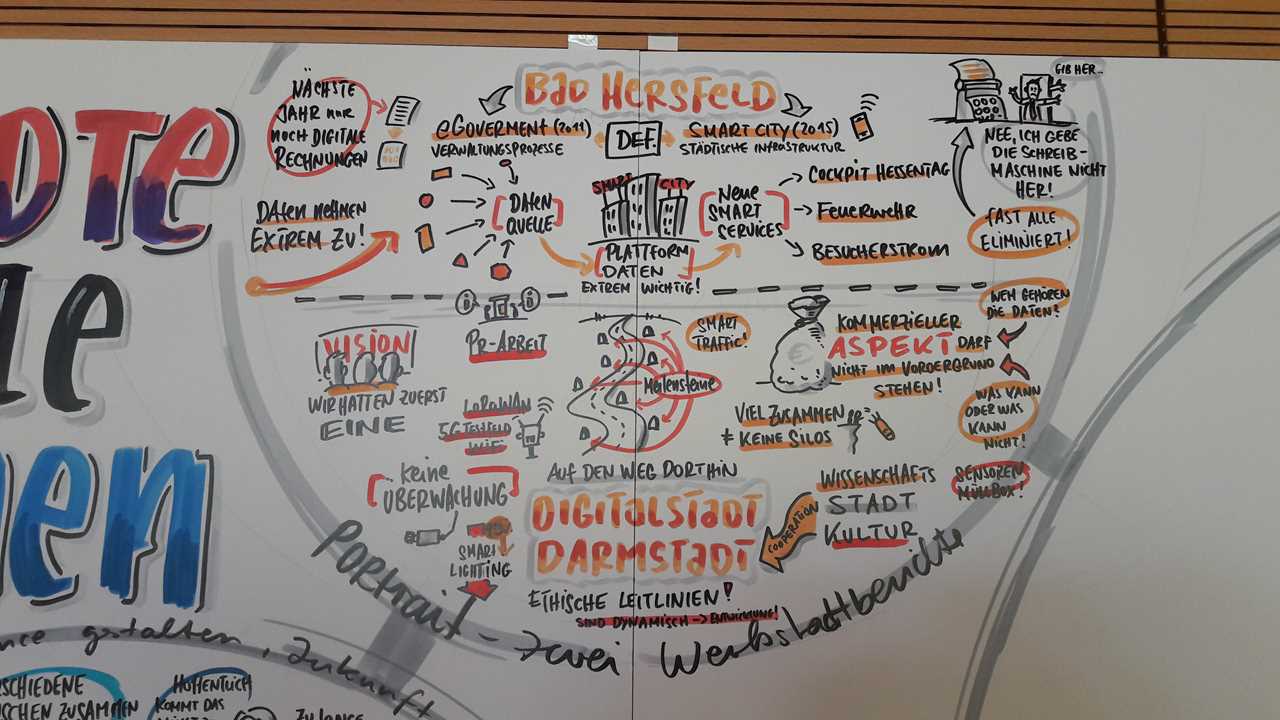 BAD HERSFELD
NÄCHSTE
JAHR NUR
NOCH DIGITALE
RECHNUNGEN
eGOVERMENT (2011)
VERWALTUNGSPROZESSE
DEF.
SMART CITY (2015)
STÄDTISCHE INFRASTRUKTUR
GIB HER...
NEE, ICH GEBE
DIE SCHREIB-
MASCHINE NICHT
HER!
FAST ALLE
ELIMINIERT!
DATEN NEHMEN
EXTREM ZU!
DATEN
QUELLE
SMART CITY
PLATTFORM
DATEN
EXTREM WICHTIG!
NEUE
SMART
SERVICES
COCKPIT HESSENTAG
FEUERWEHR
BESUCHERSTROM
VISION
WIR HATTEN ZUERST
EINE
PR-ARBEIT
LORAWAN
5G TESTFELD
WIFI
keine
ÜBERWACHUNG
SMART
LIGHTING
SMART
TRAFFIC!
Meilensteine
AUF DEN WEG DORTHIN
DIGITALSTADT
DARMSTADT
ETHISCHE LEITLINIEN!
SIND DYNAMISCH -> ENTWICKLUNG!
KOMMERZIELLER
ASPEKT DARF
NICHT IM VORDERGRUND
STEHEN!
WEM GEHÖREN
DIE DATEN?
WAS KANN
ODER WAS
KANN
NICHT!
VIEL ZUSAMMEN
≠ KEINE SILOS
WISSENSCHAFTS
STADT
KULTUR
COOPERATION
SENSOREN
MÜLLBOX!
Portrait - zwei Werkstattberichte
gestalten, Zukunft
HOFFENTLICH
KOMMT DAS
ZUSAMMEN
ZU LANGE